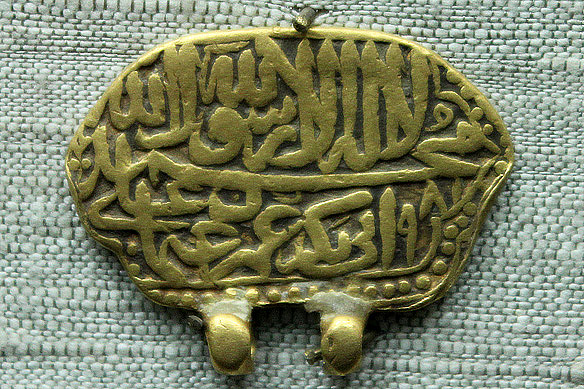 لا اله الا الله محمد رسول الله
ابو بكر عمر عثمان علي